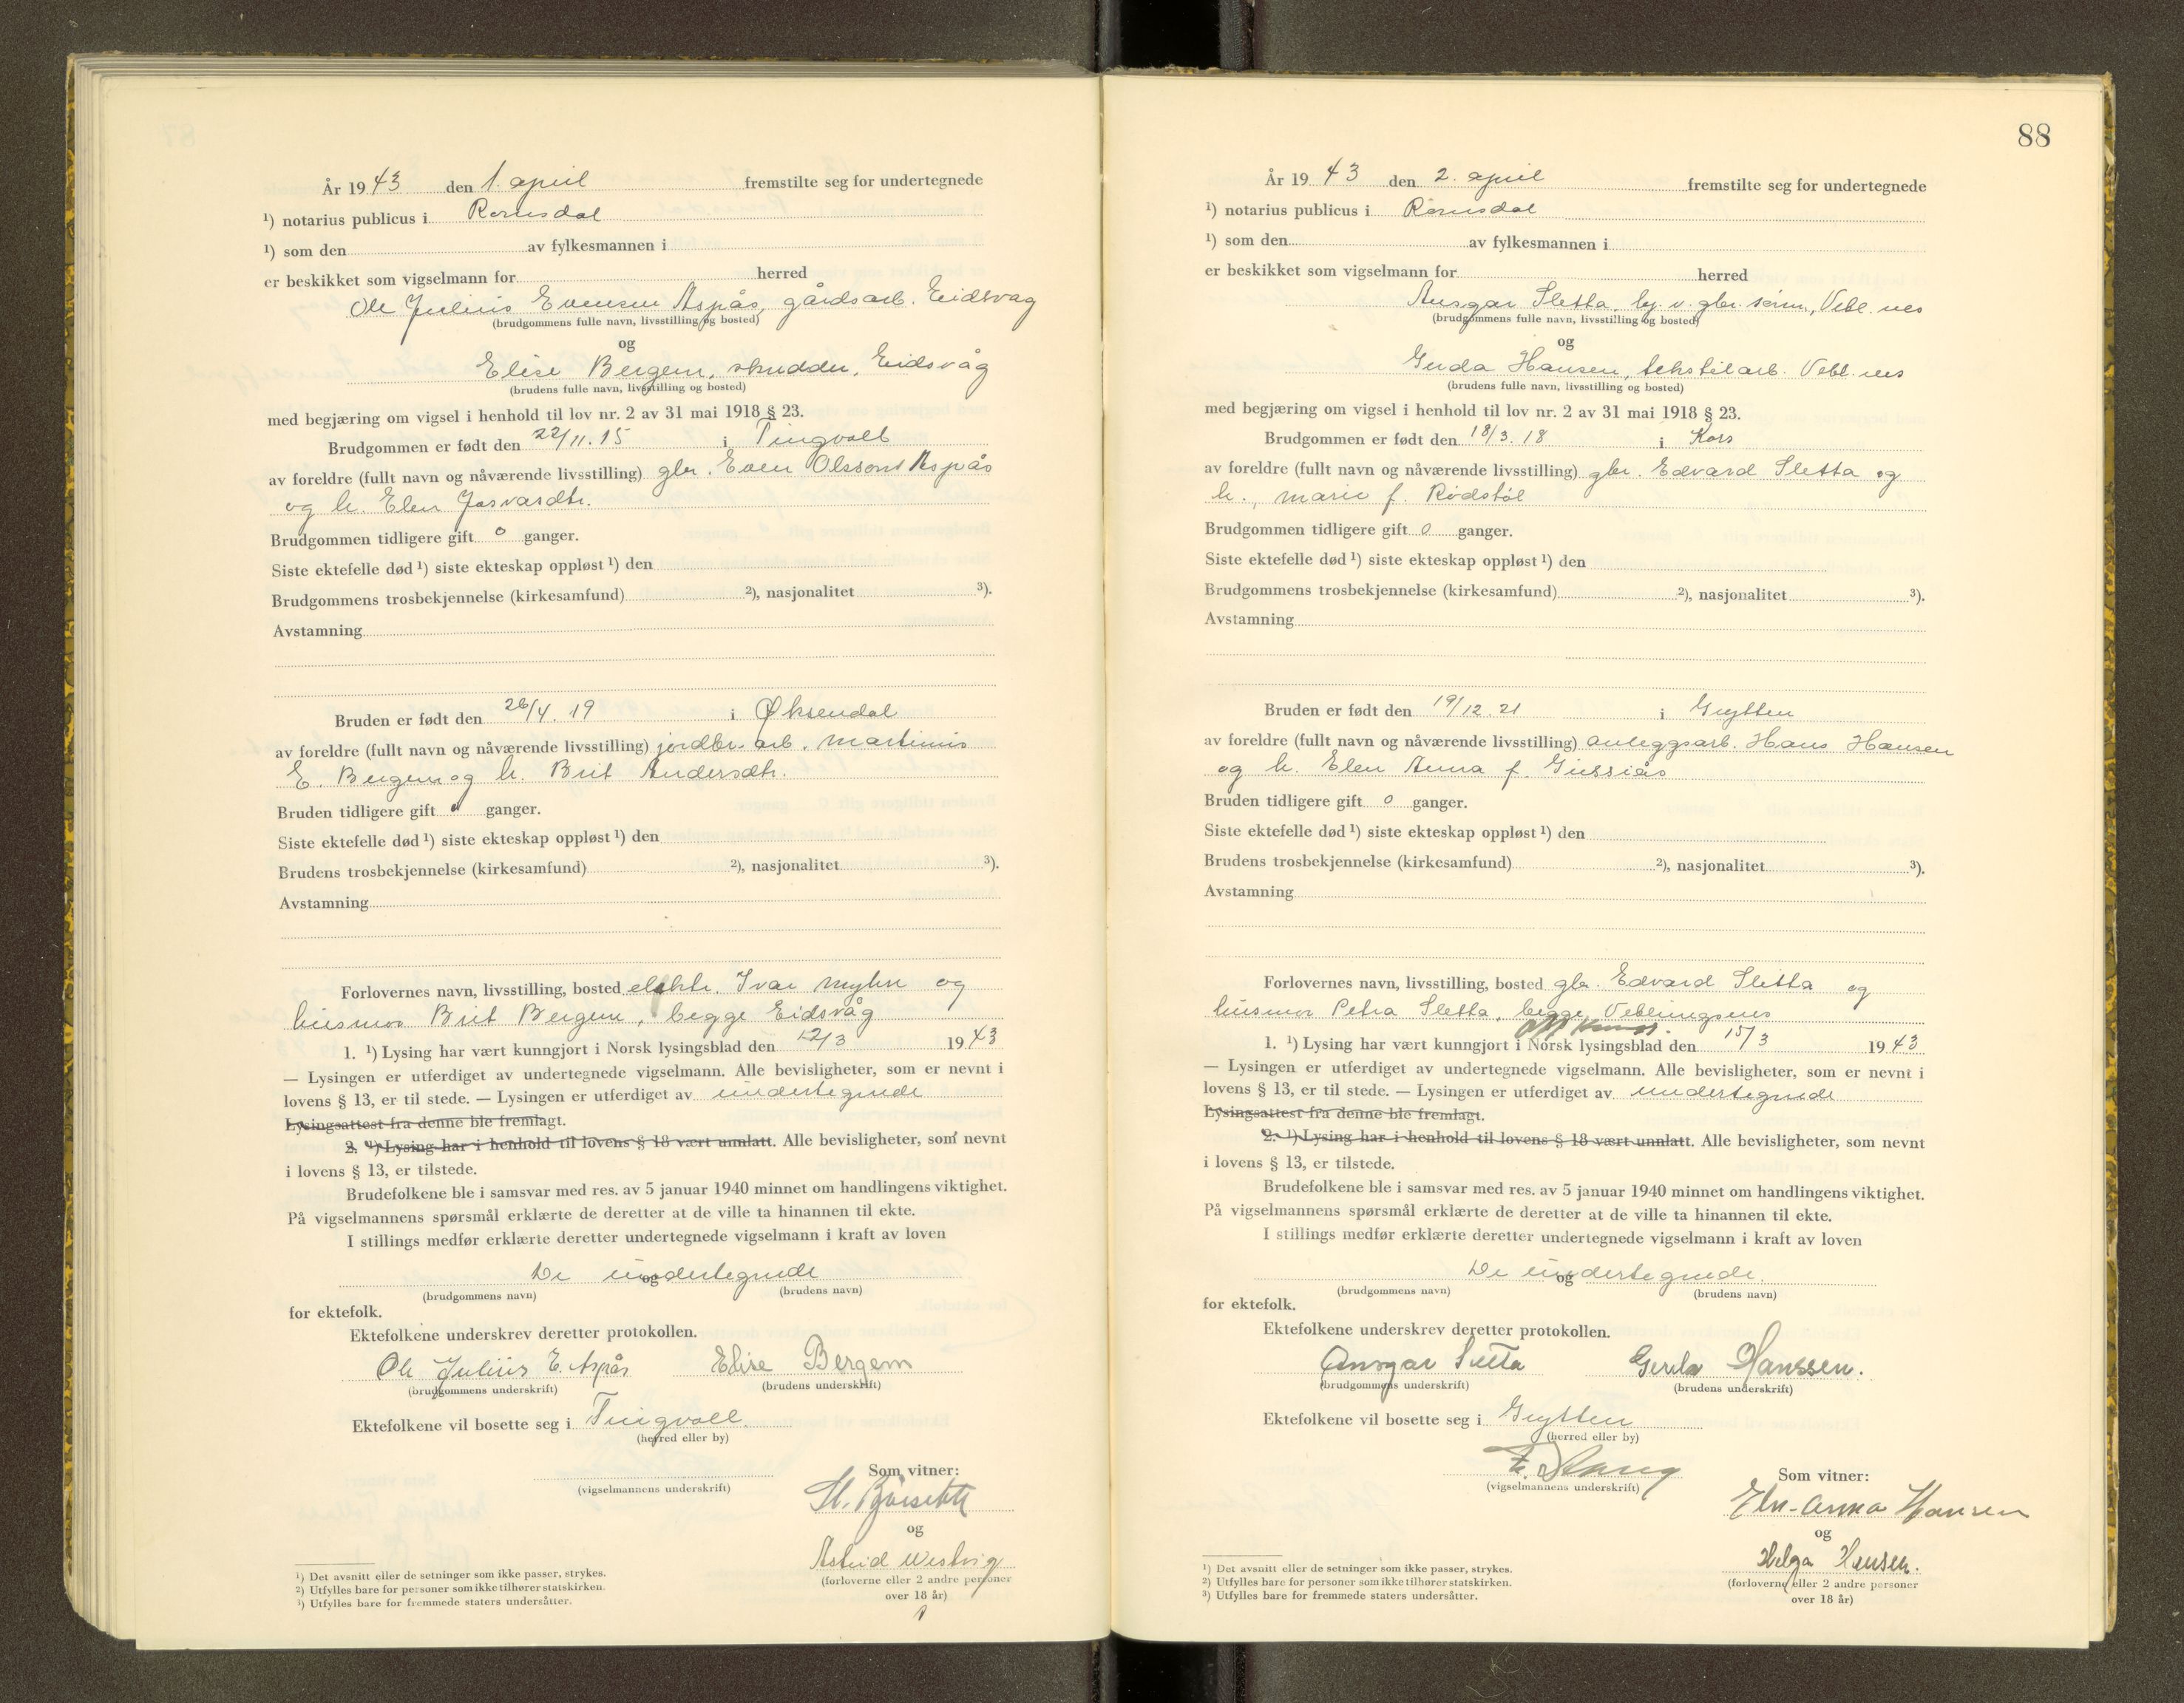 År 1943 den 1. april fremstilte seg for undertegnede
¹) notarius publicus i Romsdal
¹) som den av fylkesmannen i
er beskikket som vigselmann for herred
Ole Julius Evensen Aspås, gårdsarb. Eidsvåg
(brudgommens fulle navn, livsstilling og bosted)
og
Elise Bergem, skredder, Eidsvåg
(brudens fulle navn, livsstilling og bosted)
med begjæring om vigsel i henhold til lov nr. 2 av 31 mai 1918 § 23.
Brudgommen er født den 22/11. 15 i Tingvoll
av foreldre (fullt navn og nåværende livsstilling) gbr. Even Olsson Aspås
og h. Elen Josvardtr.
Brudgommen tidligere gift 0 ganger.
Siste ektefelle død ¹) siste ekteskap oppløst ¹) den
Brudgommens trosbekjennelse (kirkesamfund) ²), nasjonalitet ³).
Avstamning
Bruden er født den 26/4. 19 i Øksendal
av foreldre (fullt navn og nåværende livsstilling) jordbr. arb. Martinus
E. Bergem og h. Brit Andersdtr.
Bruden tidligere gift 0 ganger.
Siste ektefelle død ¹) siste ekteskap oppløst ¹) den
Brudens trosbekjennelse (kirkesamfund) ²), nasjonalitet ³).
Avstamning
Forlovernes navn, livsstilling, bosted elektr. Ivar Myhre og
husmor Brit Bergem, begge Eidsvåg
1. ¹) Lysing har vært kunngjort i Norsk lysingsblad den 12/3 1943
— Lysingen er utferdiget av undertegnede vigselmann. Alle bevisligheter, som er nevnt i
lovens § 13, er til stede. — Lysingen er utferdiget av undertegnede
Lysingsattest fra denne ble fremlagt.
2. ¹) Lysing har i henhold til lovens § 18 vært unnlatt. Alle bevisligheter, som nevnt
i lovens § 13, er tilstede.
Brudefolkene ble i samsvar med res. av 5 januar 1940 minnet om handlingens viktighet.
På vigselmannens spørsmål erklærte de deretter at de ville ta hinannen til ekte.
I stillings medfør erklærte deretter undertegnede vigselmann i kraft av loven
De undertegnede
og
(brudgommens navn) (brudens navn)
for ektefolk.
Ektefolkene underskrev deretter protokollen.
Ole Julius E. Aspås Elise Bergem
(brudgommens underskrift) (brudens underskrift)
Ektefolkene vil bosette seg i Tingvoll
(herred eller by)
Som vitner:
(vigselmannens underskrift)
og
Astrid Westvig
(forloverne eller 2 andre personer
over 18 år)
¹) Det avsnitt eller de setninger som ikke passer, strykes.
²) Utfylles bare for personer som ikke tilhører statskirken.
³) Utfylles bare for fremmede staters undersåtter.
88
År 1943 den 2. april fremstilte seg for undertegnede
¹) notarius publicus i Romsdal
¹) som den av fylkesmannen i
er beskikket som vigselmann for herred
Ansgar Sletta, hj. v. gbr. sønn, Vebl. nes
(brudgommens fulle navn, livsstilling og bosted)
og
Gerda Hansen, tekstilarb. Vebl. nes
(brudens fulle navn, livsstilling og bosted)
med begjæring om vigsel i henhold til lov nr. 2 av 31 mai 1918 § 23.
Brudgommen er født den 18/3. 18 i Kors
av foreldre (fullt navn og nåværende livsstilling) gbr. Edvard Sletta og
h., Marie f. Rødstøl
Brudgommen tidligere gift 0 ganger.
Siste ektefelle død ¹) siste ekteskap oppløst ¹) den
Brudgommens trosbekjennelse (kirkesamfund) ²), nasjonalitet ³).
Avstamning
Bruden er født den 19/12. 21 i Grytten
av foreldre (fullt navn og nåværende livsstilling) anleggsarb. Hans Hansen
og h. Elen Anna f. Gussiås
Bruden tidligere gift 0 ganger.
Siste ektefelle død ¹) siste ekteskap oppløst ¹) den
Brudens trosbekjennelse (kirkesamfund) ²), nasjonalitet ³).
Avstamning
Forlovernes navn, livsstilling, bosted gbr. Edvard Sletta og
husmor Petra Sletta, begge Veblungsnes
1. ¹) Lysing har vært kunngjort i Norsk lysingsblad den 15/3 1943
— Lysingen er utferdiget av undertegnede vigselmann. Alle bevisligheter, som er nevnt i
lovens § 13, er til stede. — Lysingen er utferdiget av undertegnede
Lysingsattest fra denne ble fremlagt.
2. ¹) Lysing har i henhold til lovens § 18 vært unnlatt. Alle bevisligheter, som nevnt
i lovens § 13, er tilstede.
Brudefolkene ble i samsvar med res. av 5 januar 1940 minnet om handlingens viktighet.
På vigselmannens spørsmål erklærte de deretter at de ville ta hinannen til ekte.
I stillings medfør erklærte deretter undertegnede vigselmann i kraft av loven
De undertegnede.
og
(brudgommens navn) (brudens navn)
for ektefolk.
Ektefolkene underskrev deretter protokollen.
Ansgar Sletta Gerda Hanssen.
(brudgommens underskrift) (brudens underskrift)
Ektefolkene vil bosette seg i Grytten
(herred eller by)
Som vitner:
(vigselmannens underskrift)
Elen-Anna Hansen
og
Helga Hansen.
(forloverne eller 2 andre personer
over 18 år)
¹) Det avsnitt eller de setninger som ikke passer, strykes.
²) Utfylles bare for personer som ikke tilhører statskirken.
³) Utfylles bare for fremmede staters undersåtter.